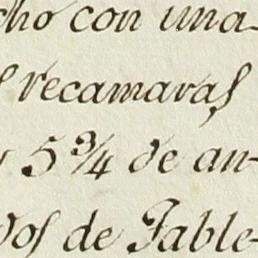 cho con una-
s recamaras
y 5 3/4 de an-
dos de Table-